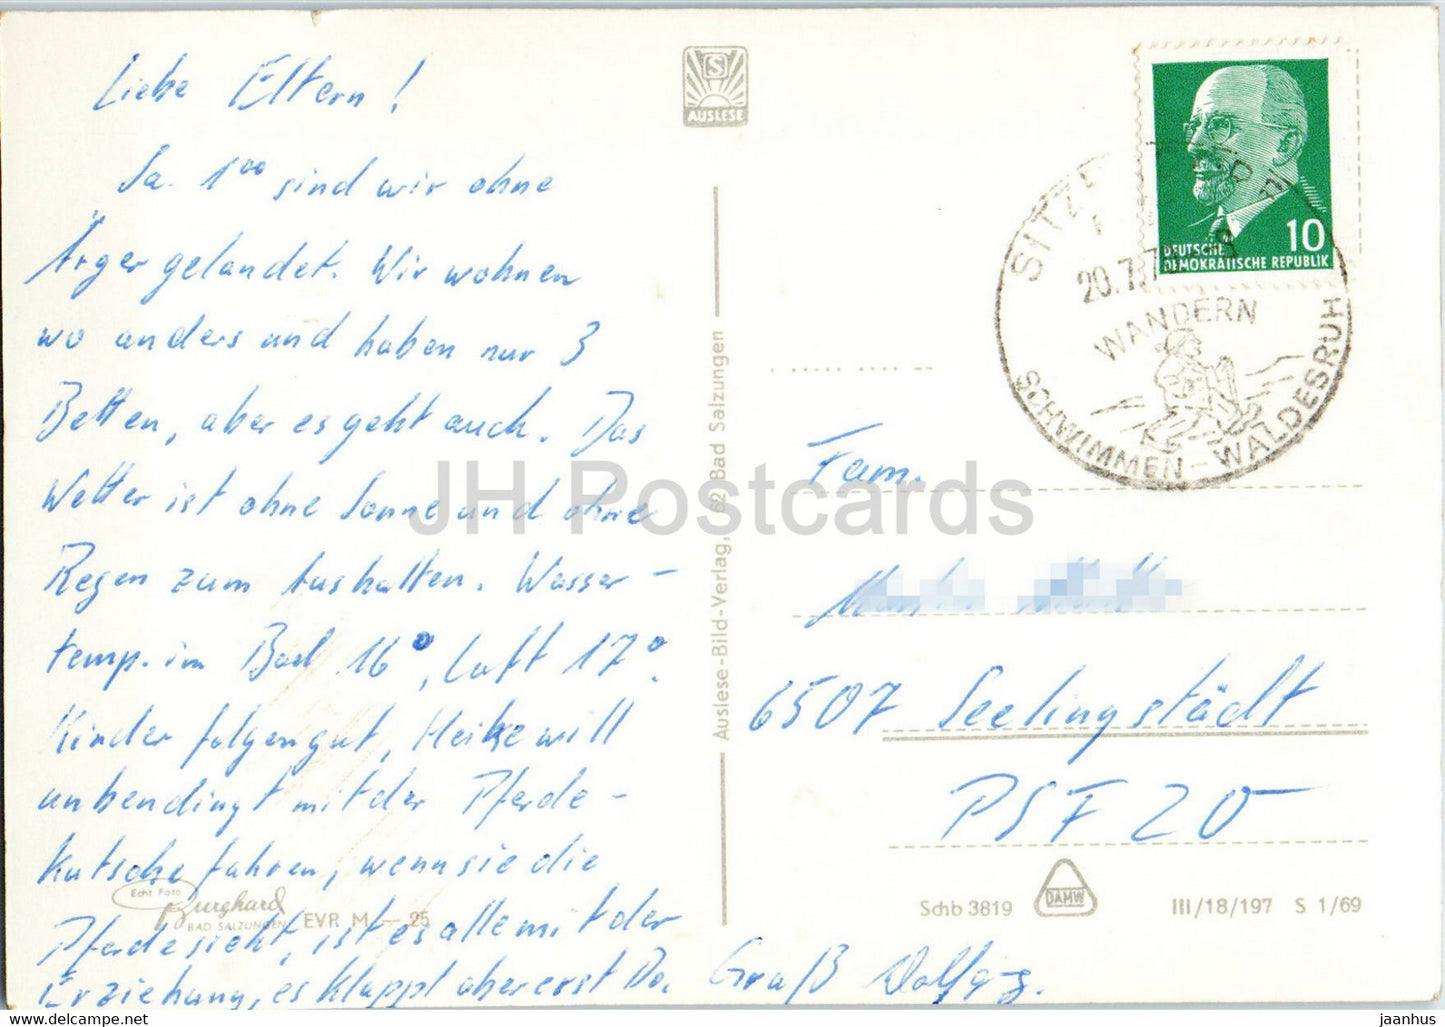 Liebe Eltern!
Sa. 1⁰⁰ sind wir ohne
Ärger gelandet. Wir wohnen
wo anders und haben nur 3
Betten, aber es geht auch. Das
Wetter ist ohne Sonne und ohne
Regen zum Aushalten. Wasser-
temp. im Bad 16°, Luft 17°.
Kinder folgen gut, Heike will
unbendingt mit der Pferde-
kutsche fahren, wenn sie die
Pferde sieht, ist es alle mit der
Erziehung, es klappt aber erst Do.
Gruß Wolfg.
S
AUSLESE
10
DEUTSCHE
DEMOKRATISCHE REPUBLIK
20.7.7
WANDERN
SCHWIMMEN - WALDESRUH
Fam.
6507 Seelingstädt
PSF 20
Auslese-Bild-Verlag, 62 Bad Salzungen
Echt Foto
Burghard
BAD SALZUNGEN
EVP. M -.25
Schb 3819
DAMW
III/18/197 S 1/69
JH Postcards
www.delcampe.net
jaanhus